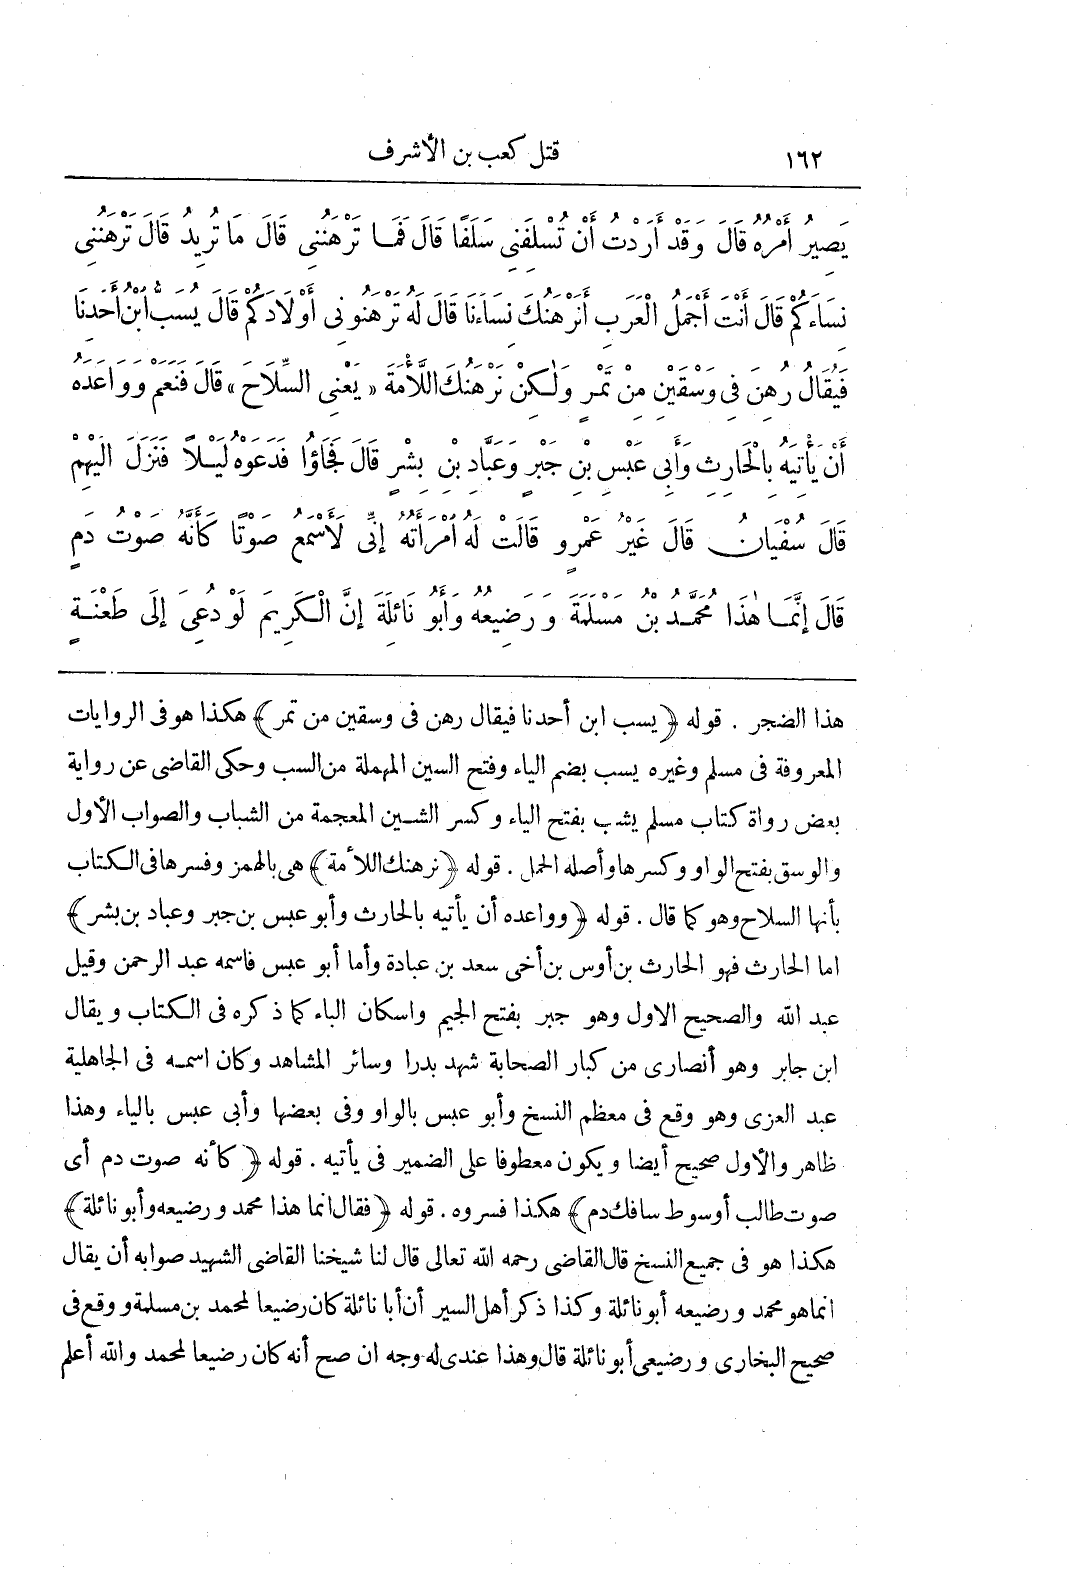 ١٦٢ قتل كعب بن الأشرف
يَصِيرُ أَمْرُهُ قَالَ وَقَدْ أَرَدْتُ أَنْ تُسْلِفَنِي سَلَفًا قَالَ فَمَا تَرْهَنُنِي قَالَ مَا تُرِيدُ قَالَ تَرْهَنُنِي
نِسَاءَكُمْ قَالَ أَنْتَ أَجْمَلُ الْعَرَبِ أَنَرْهَنُكَ نِسَاءَنَا قَالَ لَهُ تَرْهَنُونِي أَوْلَادَكُمْ قَالَ يُسَبُّ ابْنُ أَحَدِنَا
فَيُقَالُ رُهِنَ فِي وَسْقَيْنِ مِنْ تَمْرٍ وَلٰكِنْ نَرْهَنُكَ اللَّأْمَةَ «يَعْنِي السِّلَاحَ» قَالَ فَنَعَمْ وَوَاعَدَهُ
أَنْ يَأْتِيَهُ بِالْحَارِثِ وَأَبِي عَبْسِ بْنِ جَبْرٍ وَعَبَّادِ بْنِ بِشْرٍ قَالَ فَجَاؤُا فَدَعَوْهُ لَيْلًا فَنَزَلَ الَيْهِمْ
قَالَ سُفْيَانُ قَالَ غَيْرُ عَمْرٍو قَالَتْ لَهُ امْرَأَتُهُ إِنِّي لَأَسْمَعُ صَوْتًا كَأَنَّهُ صَوْتُ دَمٍ
قَالَ إِنَّمَا هٰذَا مُحَمَّدُ بْنُ مَسْلَمَةَ وَرَضِيعُهُ وَأَبُو نَائِلَةَ إِنَّ الْكَرِيمَ لَوْ دُعِيَ إِلَى طَعْنَةٍ
هذا الضجر . قوله ﴿يسب ابن أحدنا فيقال رهن فى وسقين من تمر﴾ هكذا هو فى الروايات
المعروفة فى مسلم وغيره يسب بضم الياء وفتح السين المهملة من السب وحكى القاضى عن رواية
بعض رواة كتاب مسلم يشب بفتح الياء وكسر الشين المعجمة من الشباب والصواب الأول
والوسق بفتح الواو وكسرها وأصله الحمل . قوله ﴿نرهنك اللأمة﴾ هى بالهمز وفسرها فى الكتاب
بأنها السلاح وهو كما قال . قوله ﴿وواعده أن يأتيه بالحارث وأبو عبس بن جبر وعباد بن بشر﴾
اما الحارث فهو الحارث بن أوس بن أخى سعد بن عبادة وأما أبو عبس فاسمه عبد الرحمن وقيل
عبد الله والصحيح الاول وهو جبر بفتح الجيم واسكان الباء كما ذكره فى الكتاب ويقال
ابن جابر وهو أنصارى من كبار الصحابة شهد بدرا وسائر المشاهد وكان اسمه فى الجاهلية
عبد العزى وهو وقع فى معظم النسخ وأبو عبس بالواو وفى بعضها وأبى عبس بالياء وهذا
ظاهر والأول صحيح أيضا ويكون معطوفا على الضمير فى يأتيه . قوله ﴿كأنه صوت دم أى
صوت طالب أوسوط سافك دم﴾ هكذا فسروه . قوله ﴿فقال انما هذا محمد ورضيعه وأبو نائلة﴾
هكذا هو فى جميع النسخ قال القاضى رحمه الله تعالى قال لنا شيخنا القاضى الشهيد صوابه أن يقال
انما هو محمد ورضيعه أبو نائلة وكذا ذكر أهل السير أن أبا نائلة كان رضيعا لمحمد بن مسلمة ووقع فى
صحيح البخارى ورضيعى أبو نائلة قال وهذا عندى له وجه ان صح أنه كان رضيعا لمحمد والله أعلم